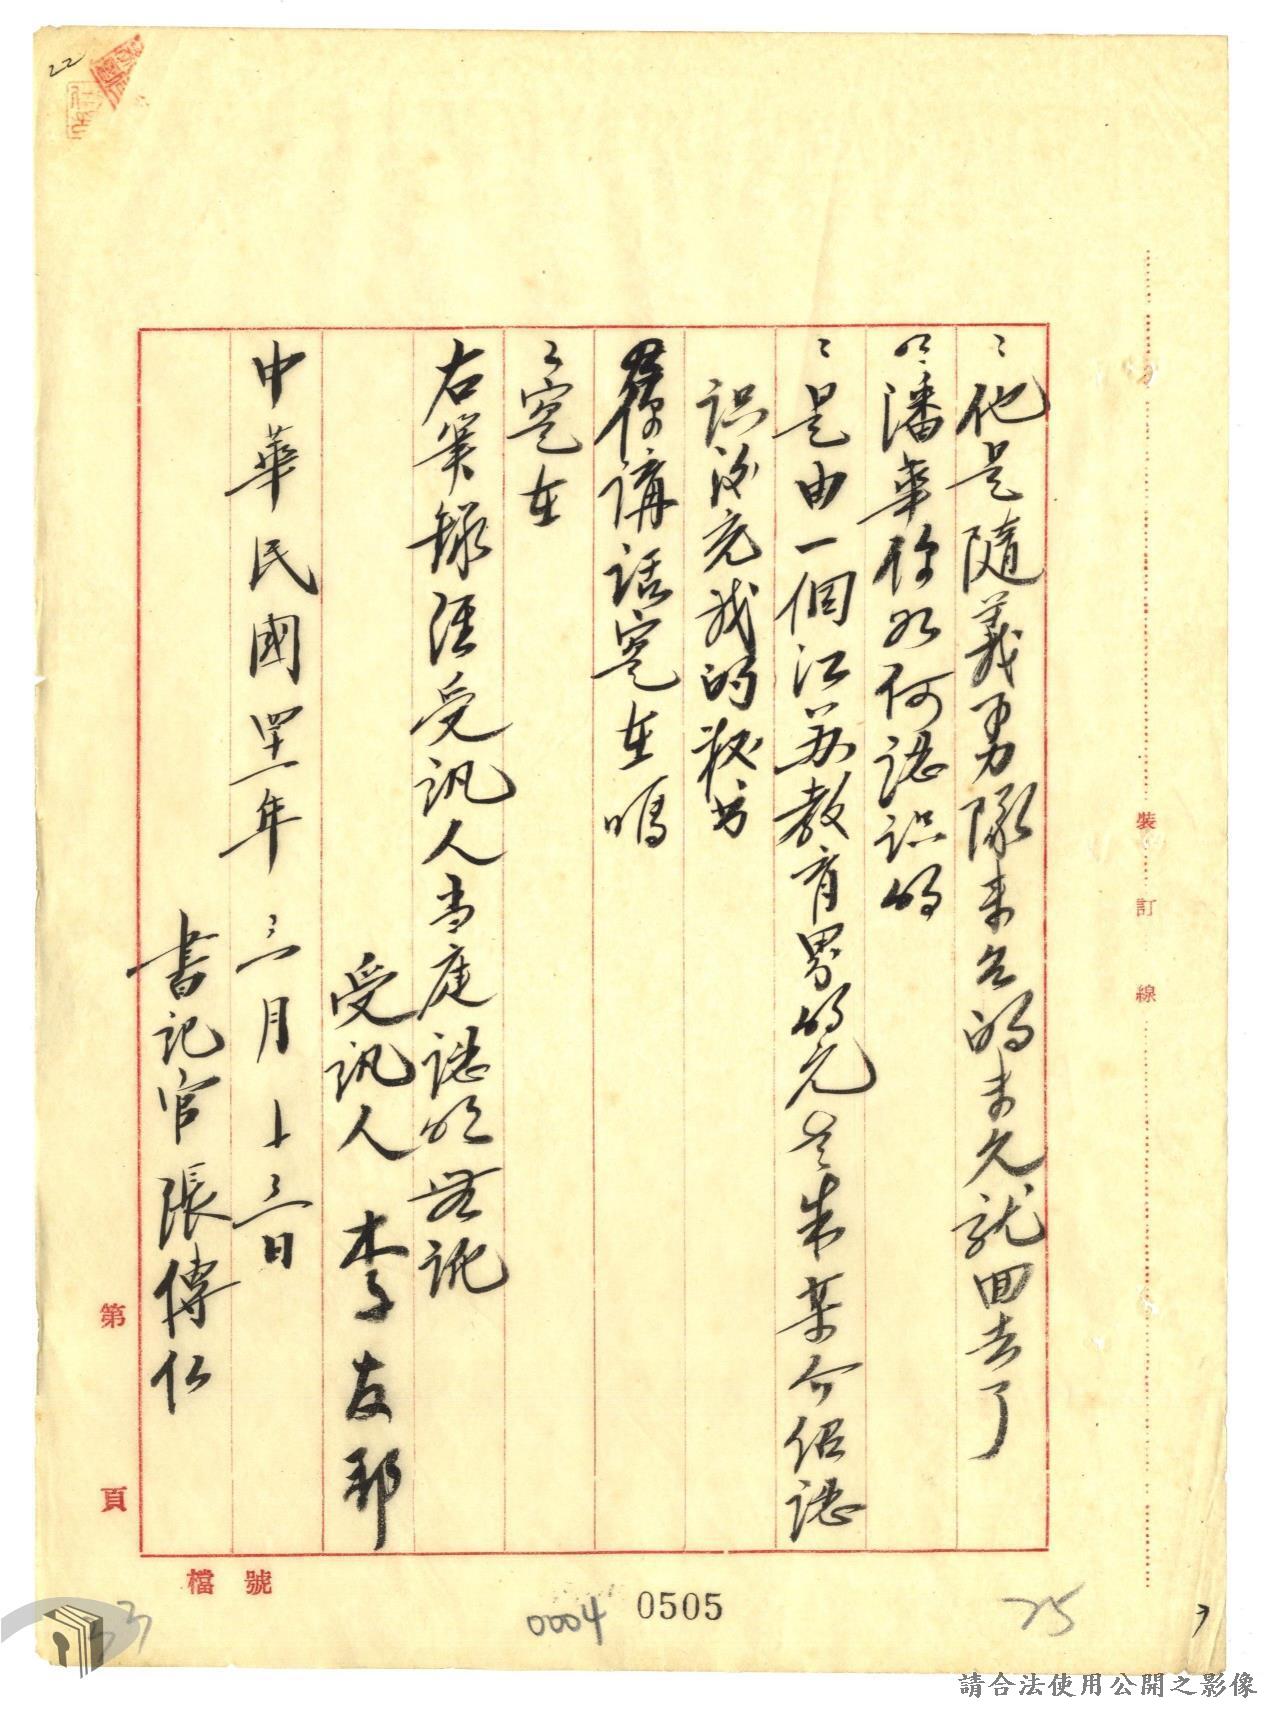 22
:他是隨義勇隊來台的未久就回去了
問:潘華你如何認識的
:是由一個江蘇教育界的先生朱某介紹認
識後充我的秘書
你講話實在嗎
:實在
右筆錄經受訊人當庭認明無訛
受訊人 李友邦
中華民國四十一年三月十三日
書記官張傳仁
裝訂線
第 頁
檔號
0004
0505
25
請合法使用公開之影像